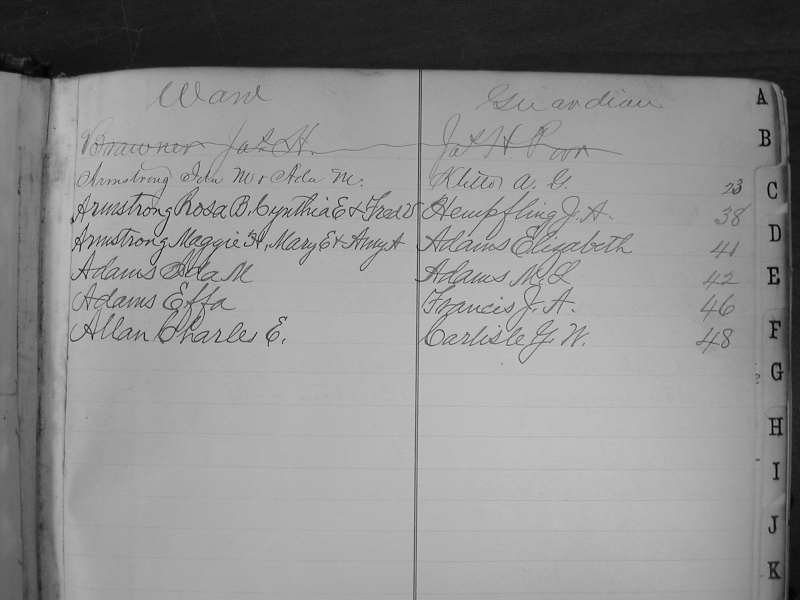 Ward Guardian
Brawner Jas. H. Jas H Poor
Armstrong Ida M & Ada M. A. G. 23
Armstrong Rosa B. Cynthia E & Fred V Hempfling J. A. 38
Armstrong Maggie H, Mary E & Amy A Adams Elizabeth 41
Adams Ida M Adams M. L 42
Adams Effa Francis J. A. 46
Allan Charles E. Carlisle G. W. 48
A
B
C
D
E
F
G
H
I
J
K